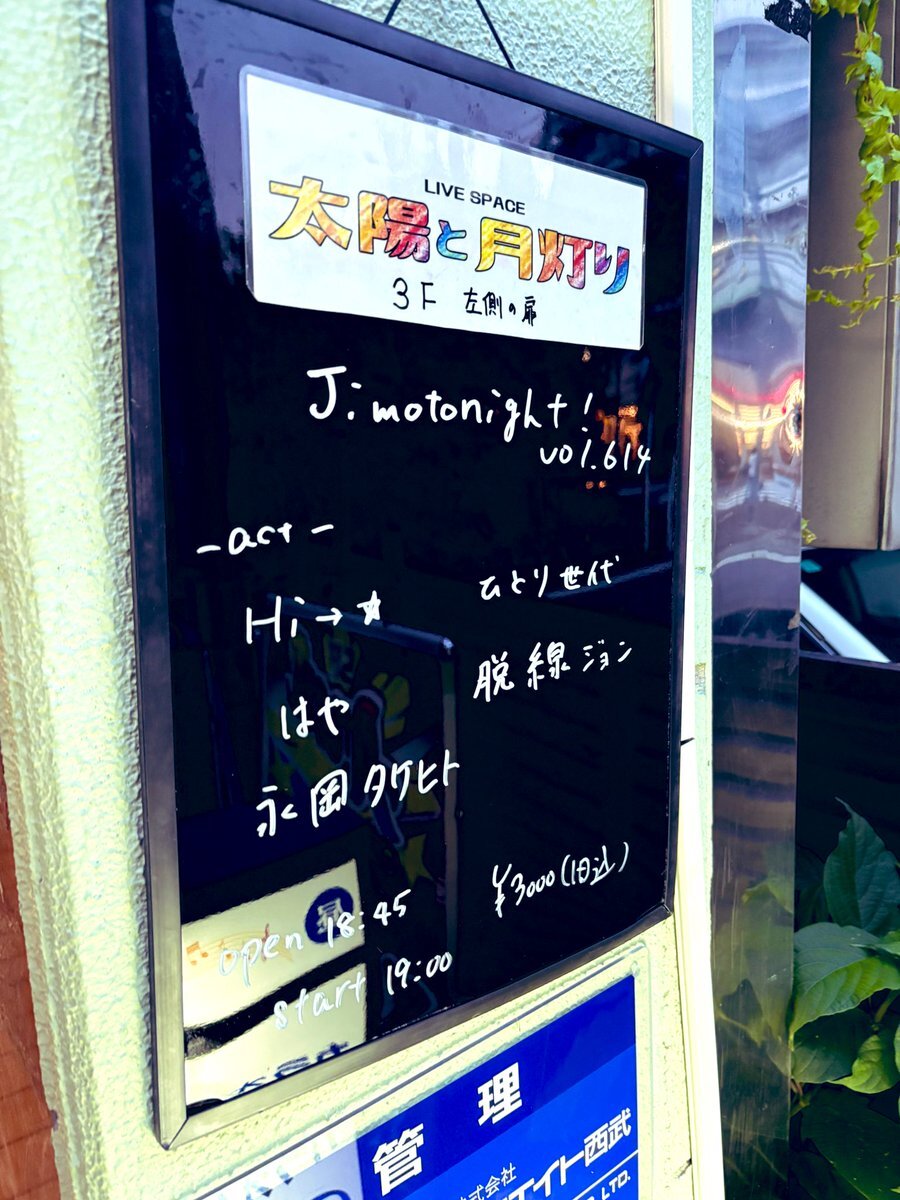 LIVE SPACE
太陽と月灯り
3F 左側の扉
J:motonight!
vol.614
-act-
Hi→☆
ひとり世代
はや
脱線ジョン
永岡タケヒト
¥3000(1D込)
open 18:45
start 19:00
管理
式会社
エイト西武
LTD.